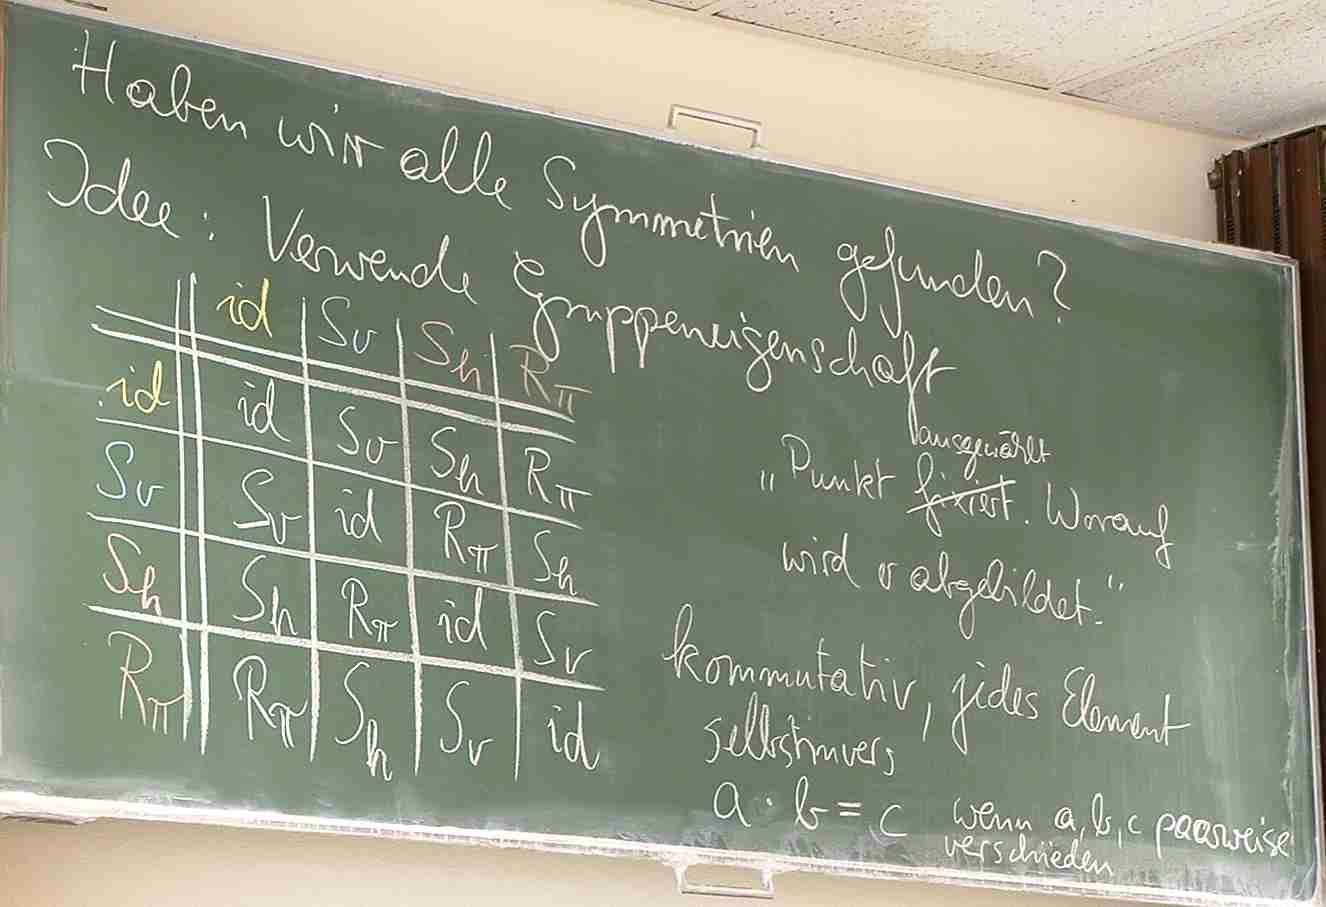 Haben wir alle Symmetrien gefunden?
Idee: Verwende Gruppeneigenschaft
id Sv Sh Rπ
id id Sv Sh Rπ
Sv Sv id Rπ Sh
Sh Sh Rπ id Sv
Rπ Rπ Sh Sv id
ausgewählt
„Punkt fixiert. Worauf
wird er abgebildet."
kommutativ, jedes Element
selbstinvers
a · b = c wenn a, b, c paarweise
verschieden